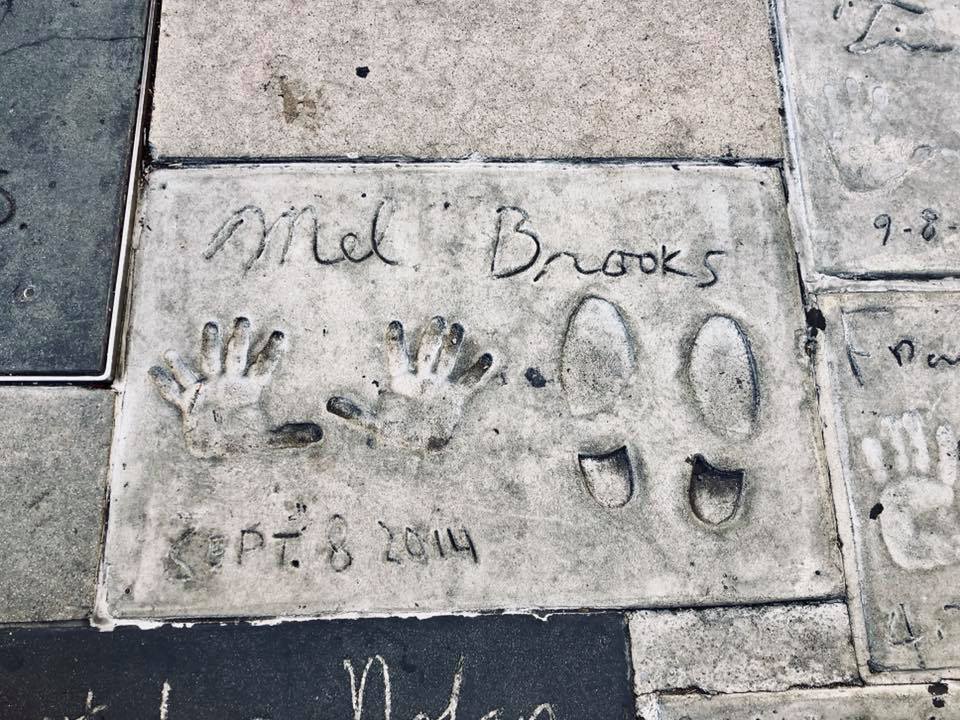 Mel Brooks
SEPT. 8 2014
9-8-